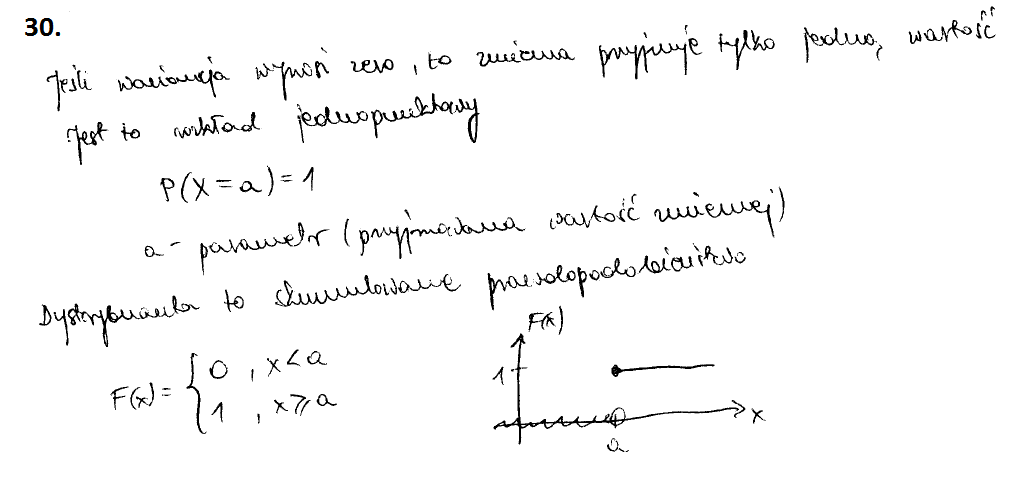 30.
Jeśli wariancja wynosi zero, to zmienna przyjmuje tylko jedną wartość
Jest to rozkład jednopunktowy
P(X=a)=1
a - parametr (przyjmowana wartość zmiennej)
Dystrybuanta to skumulowane prawdopodobieństwo
F(x)
F(x) = { 0 , x<a
1 , x⩾a
1
x
a